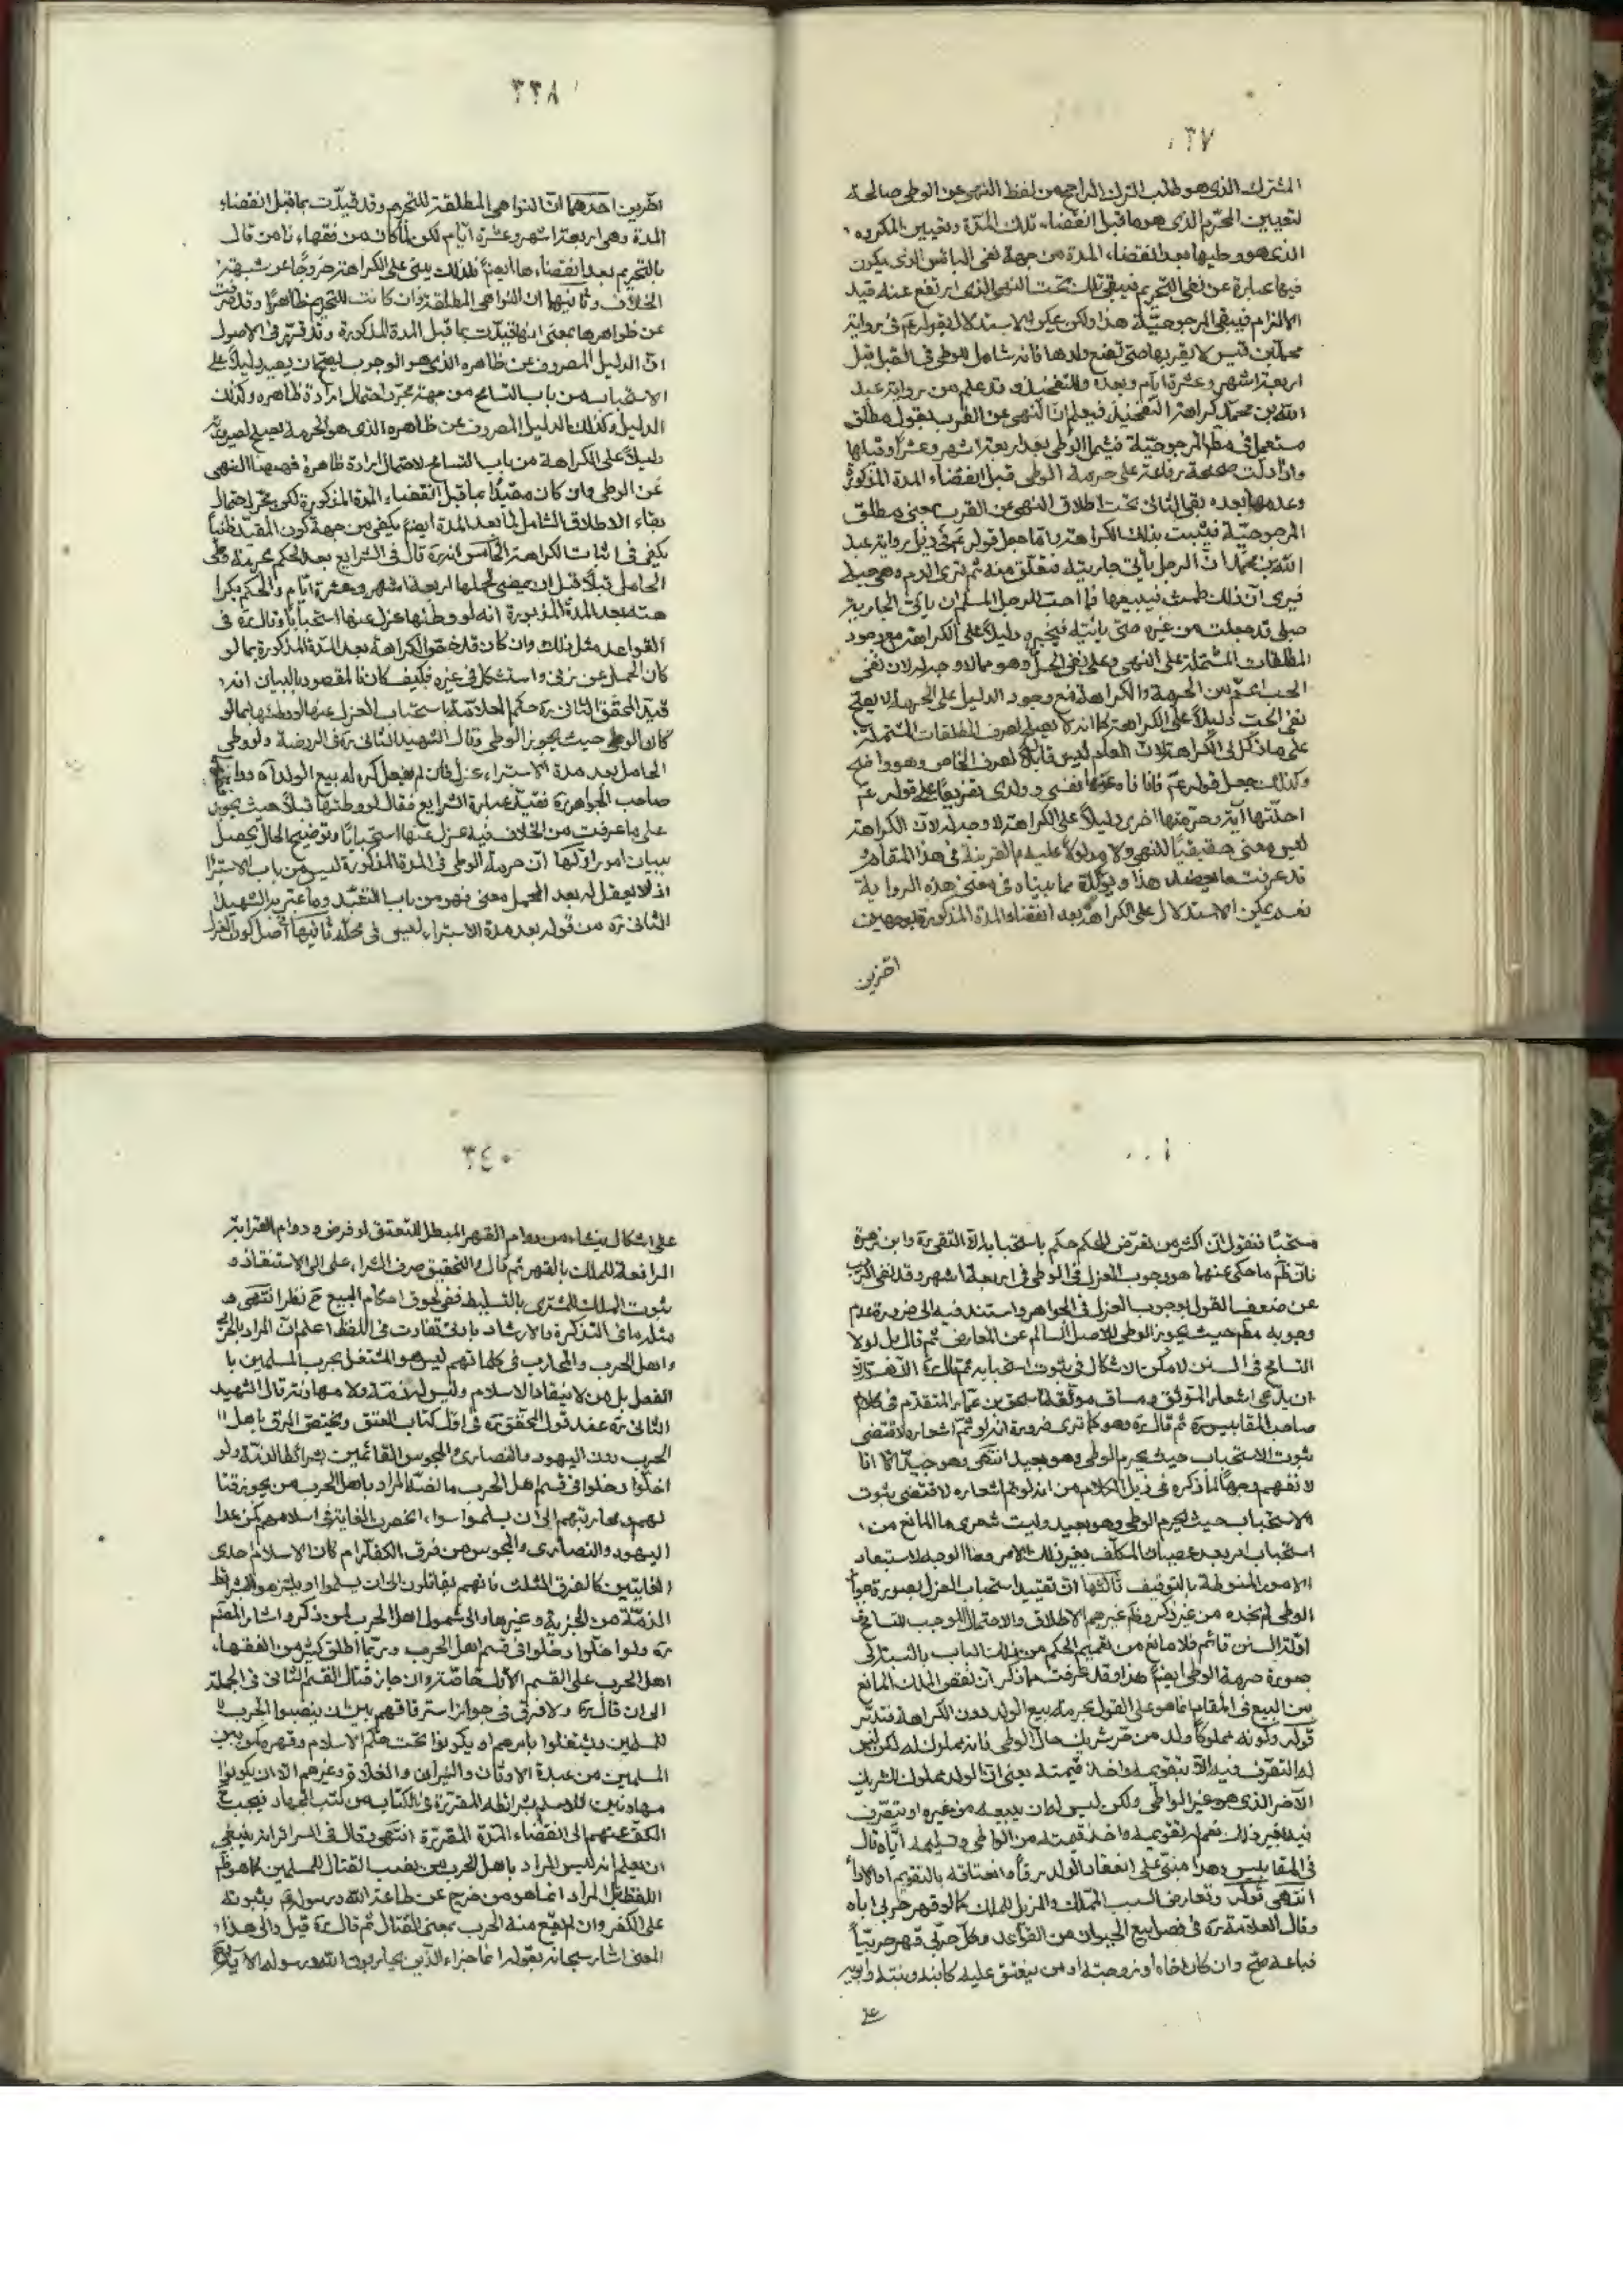 ٣٧
المشترك الذى هو طلب الترك الراجح من لفظ النهى عن الوطى صالحة
لتعيين المحرّم الذى هو ما قبل انقضاء تلك المدة وتعيين المكروه
الذى هو وطيها بعد انقضاء المدة من جهة نفى البأس الذى يكون
فيها عبارة عن نفى التحريم فيبقى تلك تحت النهى الذى ارتفع عنه قيد
الالزام فيبقى المرجوحيّة هذا ولكن يمكن الاستدلال بقوله عم فى رواية
محمّد بن قيس لا يقربها حتى تضع ولدها فانه شامل للوطى فى القبل قبل
اربعة اشهر وعشرة ايام وبعده والتفخيذ وقد علم من رواية عبد
الله بن محمّد كراهة التفخيذ فيعلم انّ النهى عن القرب بقول مطلق
مستعمل فى مطلق المرجوحيّة فيشمل الوطى بعد اربعة اشهر وعشر او قبلها
واذا دلّت صحيحة رفاعة على حرمة الوطى قبل انقضاء المدة المذكورة
وعدمها بعده بقى الثانى تحت اطلاق النهى عن القرب بمعنى مطلق
المرجوحيّة فيثبت بذلك الكراهة وامّا جعل قوله عم فى ذيل رواية عبد
الله بن محمّد انّ الرجل يأتى جاريته فتعلق منه ثم ترى الدم وهى حبلى
فيرى انّ ذلك طمث فيبيعها فما احبّ للرجل المسلم ان يأتى الجارية
حبلى قد حبلت من غيره حتى يأتيه فيخبره دليلاً على الكراهة مع وجود
المطلقات المشتملة على النهى وعلى نفى الحلّ وهو مما لا وجه له لان نفى
الحب اعمّ من الحرمة والكراهة فمع وجود الدليل على الحرمة لا يصحّ
نفى الحبّ دليلاً على الكراهة كما انه لا يصلح لصرف المطلقات المشتملة
على ما ذكر الى الكراهة لانّ العام ليس قابلاً لصرف الخاص وهو واضح
وكذلك جعل قوله عم فانا ناه عنها نفسى وولدى تفريعاً على قوله عم
احلّتها آية وحرمتها اخرى دليلاً على الكراهة لا وجه له لانّ الكراهة
ليس معنى حقيقيّاً للنهى ولا مدلولاً عليه بالقرينة فى هذا المقام
قد عرفت هذا ويؤكّده ما بيناه فى معنى هذه الرواية
نعم يمكن الاستدلال على الكراهة بعد انقضاء المدة المذكورة بوجهين
اخرين
٣٣٨
اخرين احدهما انّ النواهى المطلقة للتحريم وقد قيّدت بما قبل انقضاء
المدة وهى اربعة اشهر وعشرة ايّام لكن لمّا كان من فقهائنا من قال
بالتحريم بعد انقضائها ايضً فلذلك يبنى على الكراهة خروجًا عن شبهة
الخلاف وثانيهما ان النواهى المطلقة وان كانت للتحريم ظاهرًا وقد صرفت
عن ظواهرها بمعنى انها قيّدت بما قبل المدة المذكورة وقد قرّر فى الاصول
انّ الدليل المصروف عن ظاهره الذى هو الوجوب يصحّ ان يصير دليلاً على
الاستحباب من باب التسامح من جهة مجرّد احتمال ارادة ظاهره وكذلك
الدليل وكذلك الدليل المصروف عن ظاهره الذى هو الحرمة يصح لصيرورته
دليلاً على الكراهة من باب التسامح لاحتمال ارادة ظاهره فههنا النهى
عن الوطى وان كان مقيّدًا بما قبل انقضاء المدة المذكورة لكن مجرّد احتمال
بقاء الاطلاق الشامل لما بعد المدة ايضً يكفى من جهة كون المقيّد ظنيّاً
يكفى فى اثبات الكراهة الخامس انه ره قال فى الشرايع بعد الحكم بحرمة وطى
الحامل قبلاً قبل ان يمضى لحملها اربعة اشهر وعشرة ايّام والحكم بكرا
هته بعد المدة المذبورة انه لو وطئها عزل عنها استحباباً وقال مة فى
القواعد مثل ذلك وان كان قد خصّ الكراهة بعد المدّة المذكورة بما لو
كان الحمل عن زنى واستشكل فى غيره فكيف كان فالمقصود بالبيان انه
قيّد المحقق الثانى ره حكم العلامة باستحباب العزل عنها لو وطئها بما لو
كان الوطى حيث يجوز الوطى وقال الشهيد الثانى ره فى الروضة ولو وطى
الحامل بعد مدة الاستبراء عزل فان لم يفعل كره له بيع الولد اه وتابع
صاحب الجواهر ره تقييد عبارة الشرايع فقال لو وطئها قبلاً حيث يجوز
على ما عرفت من الخلاف فيه عزل عنها استحبابًا وتوضيح الحال يحصل
ببيان امور اوّلها انّ حرمة الوطى فى المدة المذكورة ليس من باب الاستبراء
اذ لا يعقل له بعد الحمل معنى فهو من باب التعبّد وما عبّر به الشهيد
الثانى ره من قوله بعد مدة الاستبراء ليس فى محله ثانيها اصل كون العزل
مستحبًا فنقول انّ اكثر من تعرّض للحكم حكم باستحبابه الا التقى ره وابن زهرة
فانّ ظم ما حكى عنهما هو وجوب العزل فى الوطى فى اربعة اشهر وقد نفى الريب
عن ضعف القول بوجوب العزل فى الجواهر واستند فيه الى ضرورة عدم
وجوبه مطم حيث يجوز الوطى للاصل السالم عن المعارض ثم قال بل لولا
التسامح فى السنن لامكن الاشكال فى ثبوت استحبابه ثم قال ره اللّهمّ الا
ان يدّعى اشعار الموثق ومساق موثقة اسحق بن عمّار المتقدّم فى كلام
صاحب المقابيس ره ثم قال ره وهو كما ترى ضرورة انه لو ثمّ اشعاره لاقتضى
ثبوت الاستحباب حيث يحرم الوطى وهو بعيد انتهى وهو جيّد الا انا
لا نفهم وجهًا لما ذكره فى ذيل الكلام من انه لو تم اشعاره لاقتضى ثبوت
الاستحباب حيث يحرم الوطى وهو بعيد وليت شعرى ما المانع من
استحباب امر بعد عصيان المكلّف بغير ذلك الامر وما الوجه لاستبعاد
الامور المنوطة بالتوقيف ثالثها انّ تقييد استحباب العزل بصورة جواز
الوطى لم نجده من غير ذكر وظم غيرهم الاطلاق والاحتمال الموجب للتسامح
ادلّة السنن قائم فلا مانع من تعميم الحكم من ذلك الباب بالنسبة الى
صورة حرمة الوطى ايضً هذا وقد عرفت مما ذكر انّ نقص الملك المانع
من البيع فى المقام انما هو على القول بحرمة بيع الولد دون الكراهة فتدبّر
قوله وكونه مملوكًا ولد من حرّ شريك حال الوطى فانه مملوك له لكن ليس
له التصرّف فيه الاّ بتقويمه واخذ قيمته يعنى انّ الولد مملوك الشريك
الآخر الذى هو غير الواطى ولكن ليس له ان يبيعه من غيره او يتصرّف
فيه بغير ذلك نعم له تقويمه واخذ قيمته من الواطى وتسليمه ايّاه قال
فى المقابيس وهذا مبنىّ على انعقاد الولد رقاً وانعتاقه بالتقويم او الاداء
انتهى قوله وتعارض السبب المملّك والمزيل للملك كما لو قهر حربى اباه
وقال العلامة ره فى فصل بيع الحيوان من القواعد وكلّ حربّى قهر حربيّاً
فباعه صحّ وان كان اخاه او زوجته او من ينعتق عليه كابنه وبنته وابويه
على
٣٤٠
على اشكال ينشاء من دوام القهر المبطل للتعتق لو فرض ودوام القرابة
الرافعة للملك بالقهر ثم قال والتحقيق صرف الشراء على الى الاستنقاذ و
ثبوت الملك للمشترى بالتسليط ففى لحوق احكام البيع ح نظر انتهى و
مثله ما فى التذكرة والارشاد بادنى تفاوت فى اللفظ اعلم انّ المراد بالحربى
واهل الحرب والمحارب فى كلماتهم ليس هو المشتغل بحرب المسلمين با
لفعل بل من لا ينقاد الاسلام وليس له ذمّة ولا مهادنة قال الشهيد
الثانى ره عند قول المحقق ره فى اوّل كتاب العتق ويختصّ الرق باهل
الحرب دون اليهود والنصارى والمجوس القائمين بشرائط الذمّة ولو
اخلّوا دخلوا فى قسم اهل الحرب ما نصّه المراد باهل الحرب من يجوز قتا
لهم ومحاربتهم الى ان يسلموا سواء انحصرت الغاية فى اسلامهم كمن عدا
اليهود والنصارى والمجوس من فرق الكفّار ام كان الاسلام احدى
الغايتين كالفرق الثلث فانهم يقاتلون الى ان يسلموا او يلتزموا بشرائط
الذمّة من الجزية وغيرها والى شمول اهل الحرب لمن ذكر اشار المصنّم
ره ولو اخلّوا دخلوا فى قسم اهل الحرب وربّما اطلق كثير من الفقهاء
اهل الحرب على القسم الاوّل خاصّة وان جاز قتال القسم الثانى فى الجملة
الى ان قال ره ولا فرق فى جواز استرقاقهم بين ان ينصبوا الحرب
للمسلمين ويشتغلوا بامرهم او يكونوا تحت حكم الاسلام وقهره كمن بين
المسلمين من عبدة الاوثان والنيران والغلاة وغيرهم الا ان يكونوا
مهادنين للمسلمين بشرائطه المقرّرة فى الكتاب من كتب الجهاد فيجب ح
الكفّ عنهم الى انقضاء المدّة المقرّرة انتهى وقال فى السرائر انه ينبغى
ان يعلم انه ليس المراد باهل الحرب من نصب القتال للمسلمين كما هو ظم
اللفظ بل المراد انما هو من خرج عن طاعة الله ورسوله صم بثبوته
على الكفر وان لم يقع منه الحرب بمعنى القتال ثم قال ره قيل والى هذا
المعنى اشار سبحانه بقوله انما جزاء الذين يحاربون الله ورسوله الاية